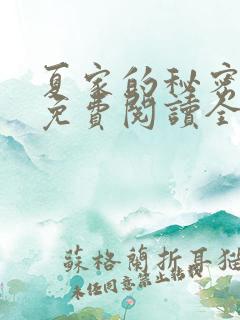 夏家的秘密
免費閱讀全
蘇格蘭折耳貓
未經同意禁止轉載